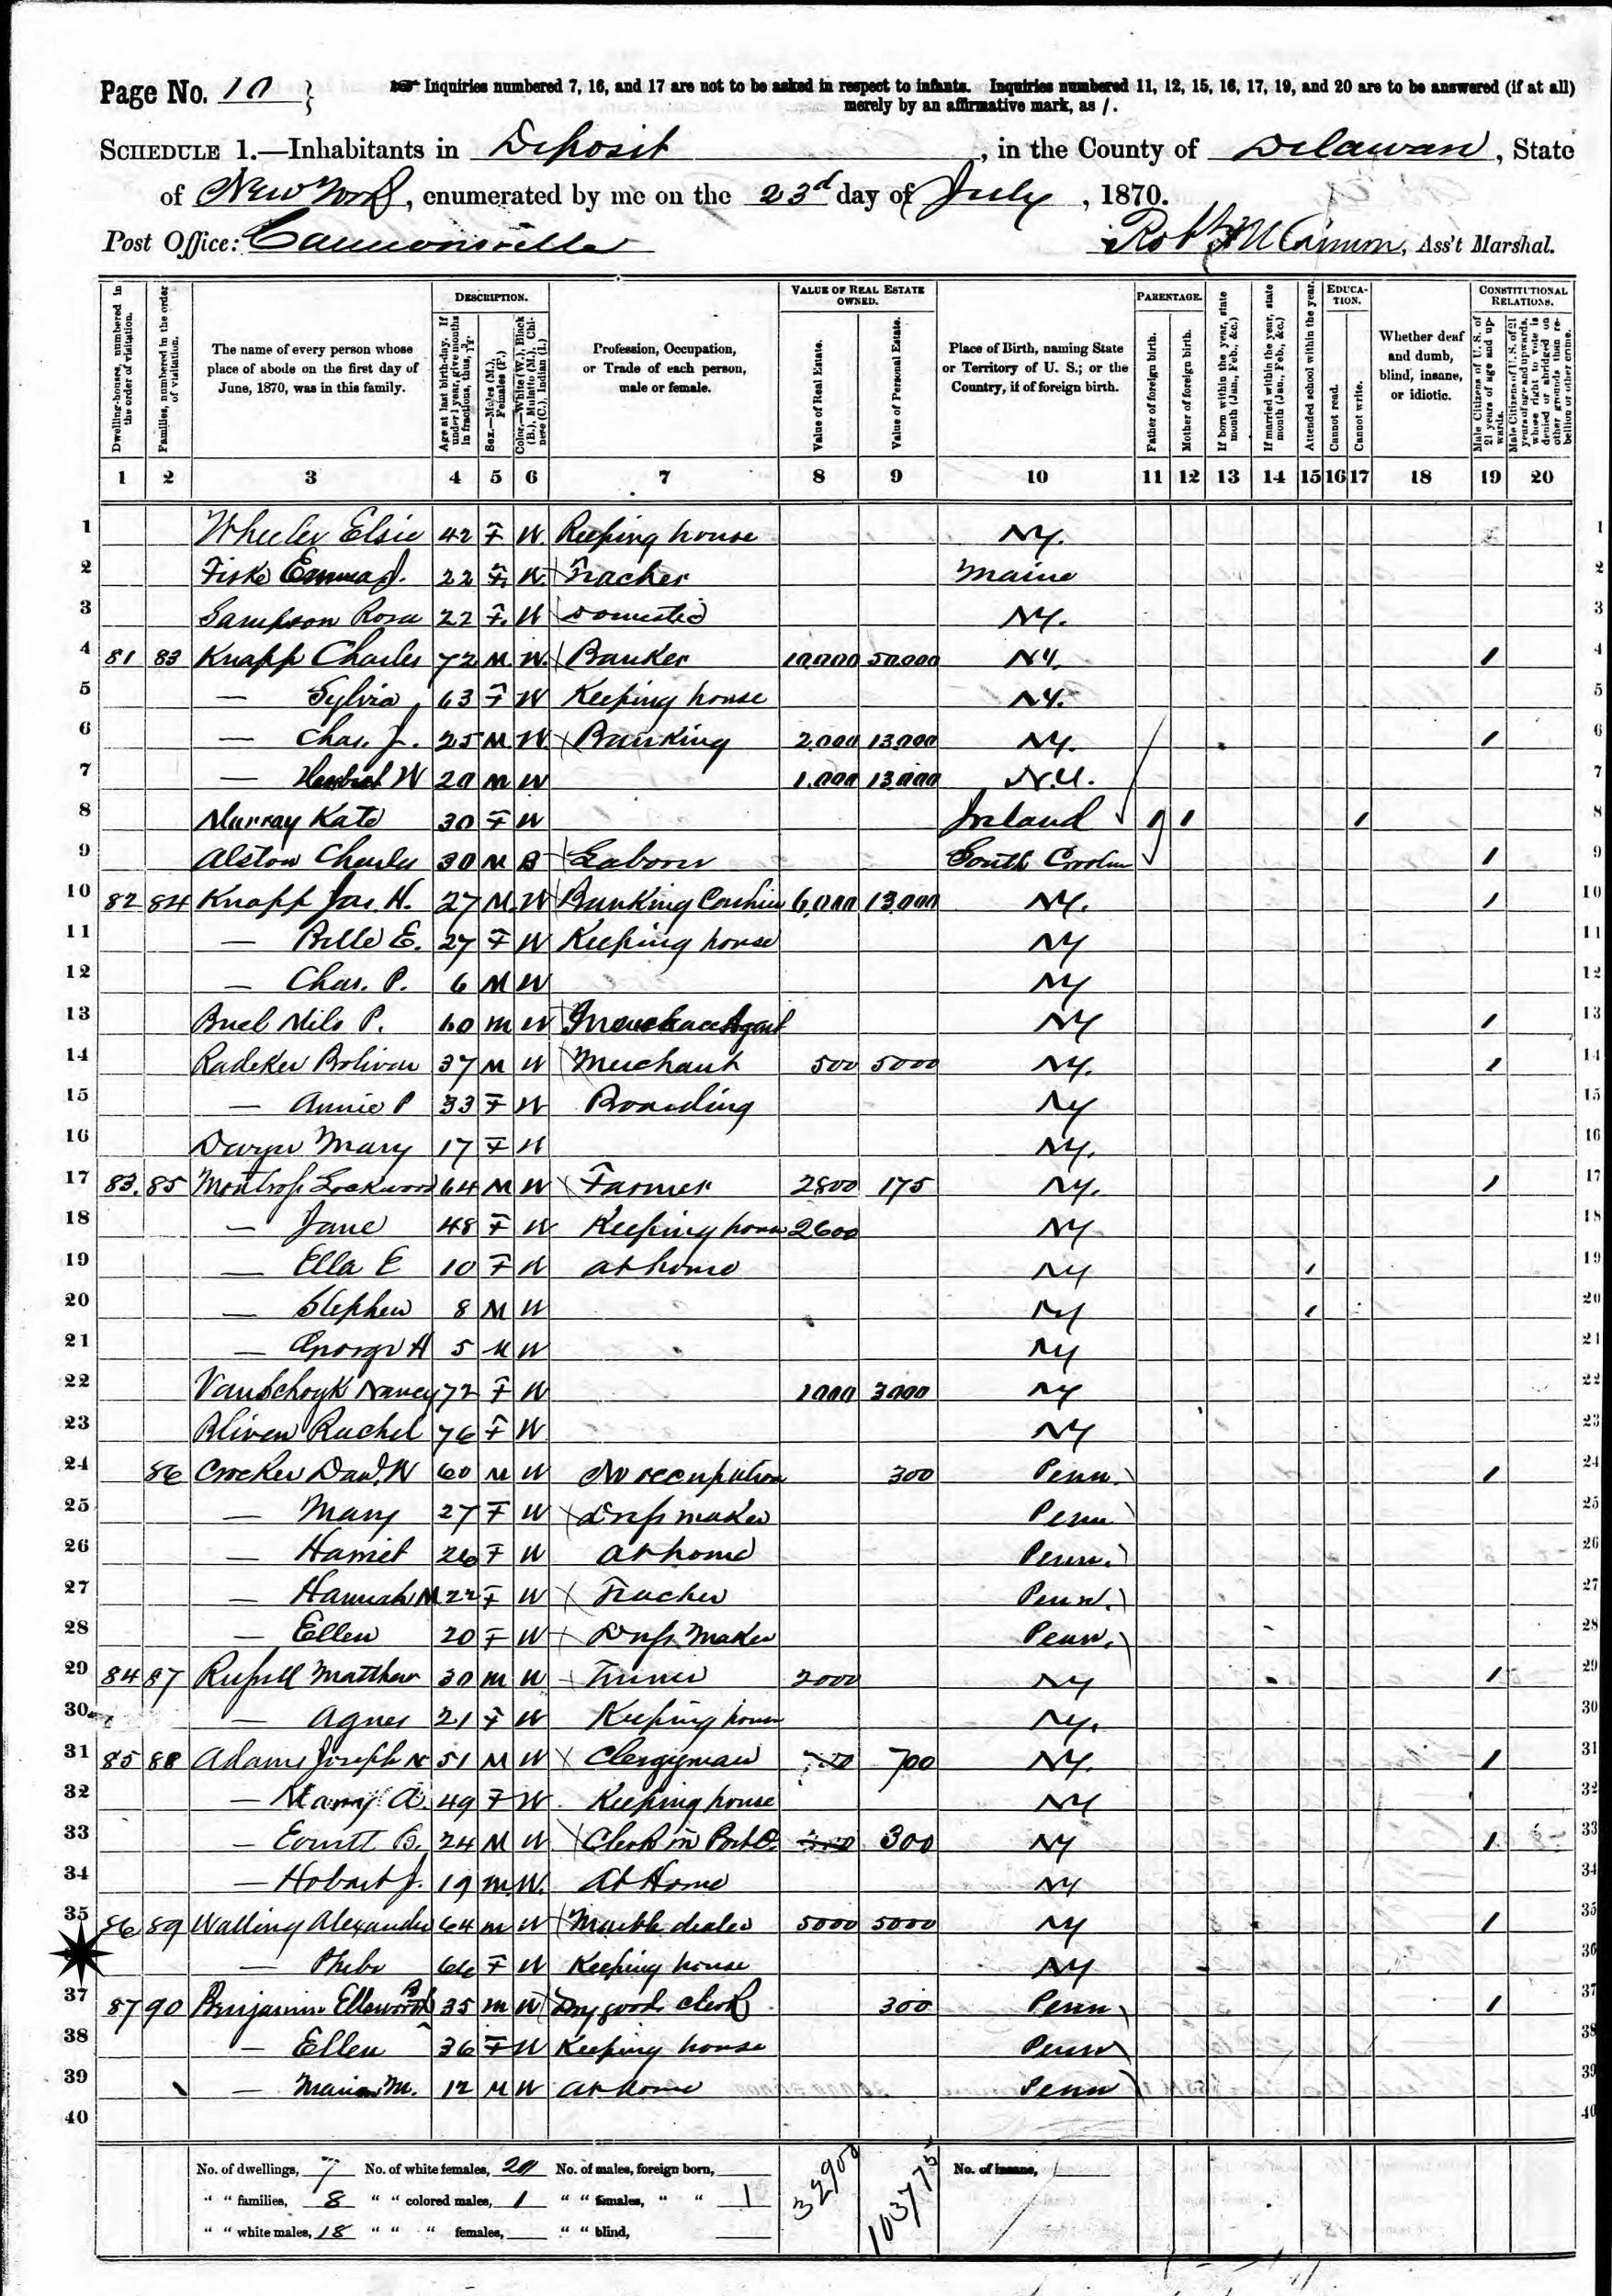 Page No. 10 } Inquiries numbered 7, 16, and 17 are not to be asked in respect to infants. Inquiries numbered 11, 12, 15, 16, 17, 19, and 20 are to be answered (if at all)
merely by an affirmative mark, as /.
SCHEDULE 1.—Inhabitants in Deposit, in the County of Delaware, State
of New York, enumerated by me on the 23d day of July, 1870.
Post Office: Cannonsville Ass't Marshal.
Dwelling-houses, numbered in the order of visitation.
Families, numbered in the order of visitation.
The name of every person whose place of abode on the first day of June, 1870, was in this family.
DESCRIPTION.
Age at last birth-day. If under 1 year, give months in fractions, thus, 3/12.
Sex.—Males (M.), Females (F.)
Color.—White (W.), Black (B.), Mulatto (M.), Chinese (C.), Indian (I.)
Profession, Occupation, or Trade of each person, male or female.
VALUE OF REAL ESTATE OWNED.
Value of Real Estate.
Value of Personal Estate.
Place of Birth, naming State or Territory of U. S.; or the Country, if of foreign birth.
PARENTAGE.
Father of foreign birth.
Mother of foreign birth.
If born within the year, state month (Jan., Feb., &c.)
If married within the year, state month (Jan., Feb., &c.)
Attended school within the year.
EDUCATION.
Cannot read.
Cannot write.
Whether deaf and dumb, blind, insane, or idiotic.
CONSTITUTIONAL RELATIONS.
Male Citizens of U. S. of 21 years of age and upwards.
Male Citizens of U. S. of 21 years of age and upwards, whose right to vote is denied or abridged on other grounds than rebellion or other crime.
1 2 3 4 5 6 7 8 9 10 11 12 13 14 15 16 17 18 19 20
1 Wheeler Elsie 42 F W. Keeping house NY. 1
2 Fisk Emma J. 22 F. W. Teacher Maine 2
3 Sampson Rosa 22 F. W Domestic NY. 3
4 81 83 Knapp Charles 72 M. W. Banker 10,000 50,000 NY. / 4
5 — Sylvia 63 F W Keeping house NY. 5
6 — Chas. J. 25 M. W. Banking 2,000 13,000 NY. / 6
7 — W 20 M W 1,000 13,000 N.Y. 7
8 Murray Kate 30 F W Ireland / / / 8
9 Alston Charles 30 M B Laborer South Carolina / 9
10 82 84 Knapp Jas. H. 27 M. W Banking Cashier 6,000 13,000 NY. / 10
11 — Belle E. 27 F W Keeping house NY 11
12 — Chas. P. 6 M W NY 12
13 Buel Milo P. 60 M W Insurance Agent NY / 13
14 Radeker Bolivar 37 M W Merchant 500 5000 NY. / 14
15 — Annie P 33 F W Boarding NY 15
16 Mary 17 F W NY. 16
17 83. 85 Montross Lockwood 64 M W Farmer 2800 175 NY. / 17
18 — Jane 48 F W Keeping house 2600 NY 18
19 — Ella E 10 F W at home NY / 19
20 — Stephen 8 M W NY / 20
21 — George H 5 M W NY 21
22 VanSchoyk Nancy 72 F W 1000 3000 NY 22
23 Bliven Rachel 76 F W NY 23
24 86 Crocker Davd. W 60 M W No occupation 300 Penn. / 24
25 — Mary 27 F W Dress maker Penn 25
26 — Harriet 26 F W at home Penn. 26
27 — Hannah M 22 F W Teacher Penn. 27
28 — Ellen 20 F W Dress Maker Penn. 28
29 84 87 Russell Matthew 30 M W 2000 NY / 29
30 — Agnes 21 F W Keeping house NY. 30
31 85 88 Adams Joseph N 51 M W Clergyman 700 NY. / 31
32 — Mary A. 49 F W Keeping house NY 32
33 — Everitt B. 24 M W Clerk in Post O. 300 NY / 33
34 — Hobart J. 19 M W. At Home NY 34
35 86 89 Walling Alexander 64 M W Marble dealer 5000 5000 NY / 35
— Phebe 66 F W Keeping house NY 36
37 87 90 Benjamin Ellsworth B 35 M W Dry goods Clerk 300 Penn / 37
38 — Ellen 36 F W Keeping house Penn 38
39 — M. 12 M W at home Penn 39
40 40
No. of dwellings, 7 No. of white females, 20 No. of males, foreign born, 32900 103775 No. of insane,
" " families, 8 " " colored males, 1 " " females, " " 1
" " white males, 18 " " " females, " " blind,